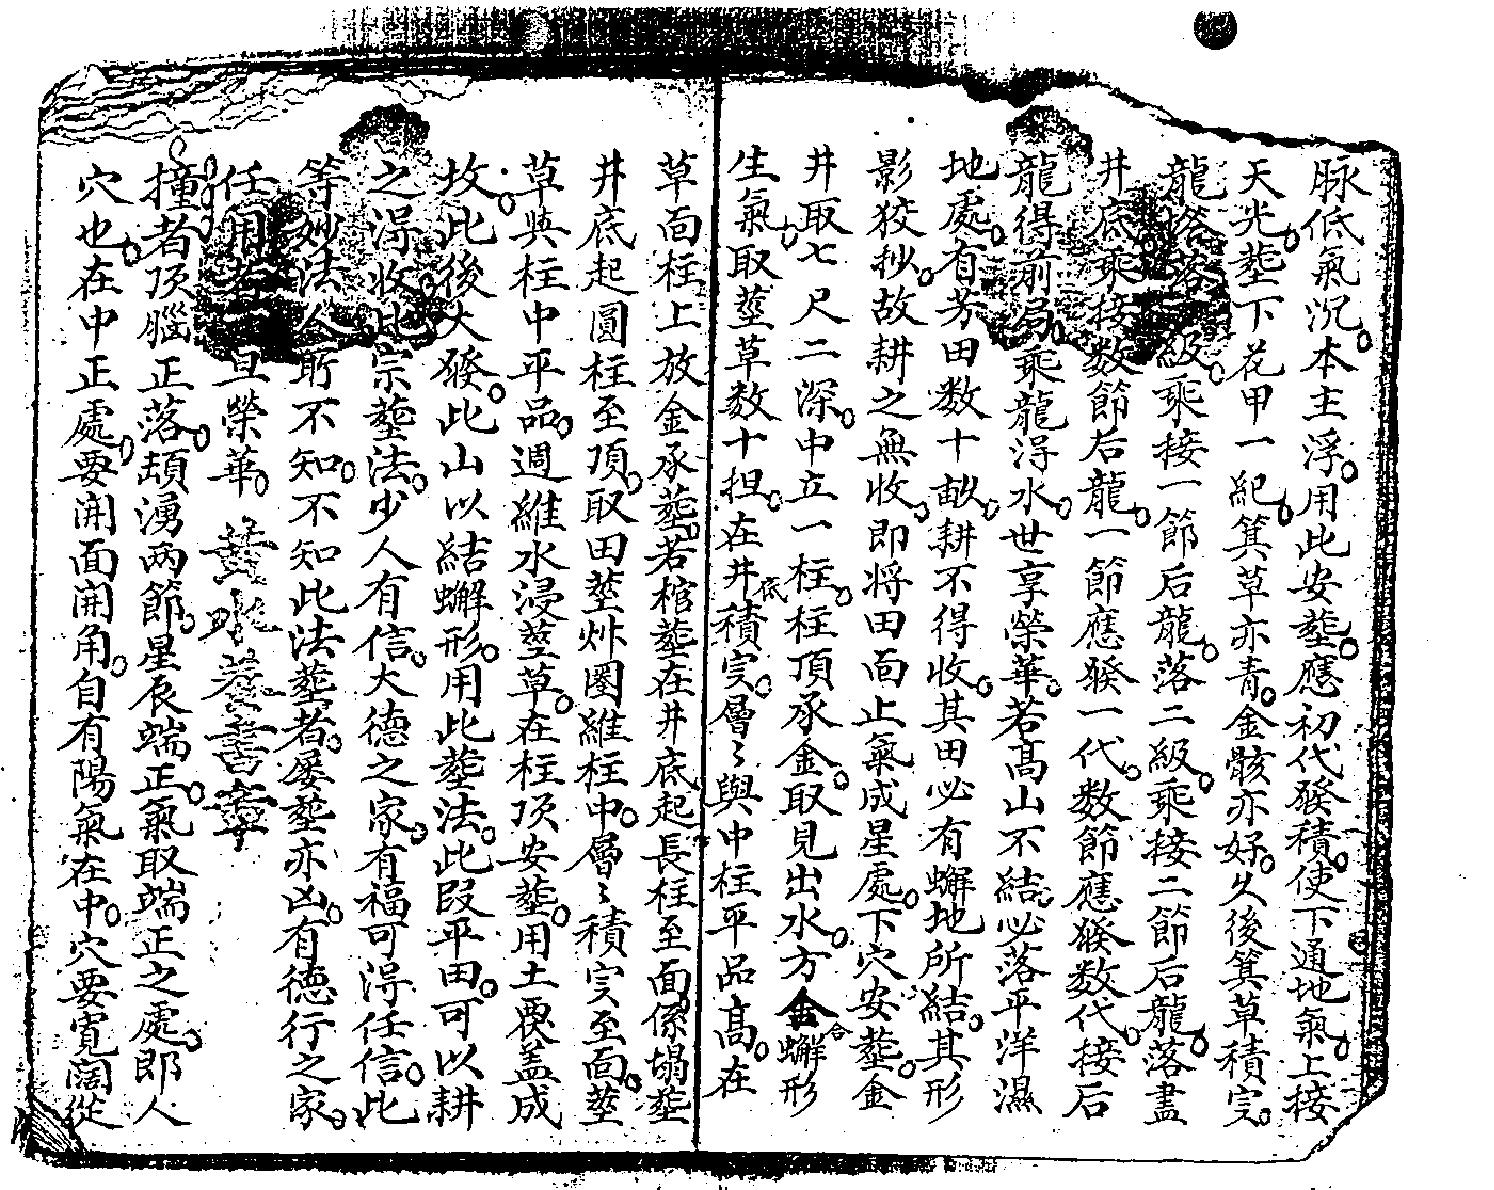 脉低氣沉本主浮用此安塟應初代發積使下通地氣上接
天光塟下花甲一紀箕草亦青金骸亦好久後箕草積寔
龍落級乘接一節后龍落二級乘接二節后龍落盡
井底乘接数節后龍一節應發一代数節應發数代接后
龍得前局乘龍淂水世享榮華若高山不結必落平洋濕
地處有芳田数十畝耕不得收其田必有蠏地所結其形
影狡抄故耕之無收即将田面止氣成星處下穴安塟金
井取七尺二深中立一柱柱頂承金取見出水方合蠏形
生氣取莖草数十担在井底積寔層〻與中柱平品高在
草面柱上放金承塟若棺塟在井底起長柱至面係塌塟
井底起圓柱至頂取田莖炑圈維柱中層〻積寔至面莖
草與柱中平品週維水浸莖草在柱頂安塟用土覄盖成
坟此後大發此山以結蠏形用此塟法此段平田可以耕
之淂收此宗塟法少人有信大德之家有福可淂任信此
等妙法令所不知不知此法塟者屡塟亦凶有德行之家
任用旦榮華
撞者頂腦正落頏湧两節星辰端正氣取端正之處即人
穴也在中正處要開面開角自有陽氣在中穴要寬闊從